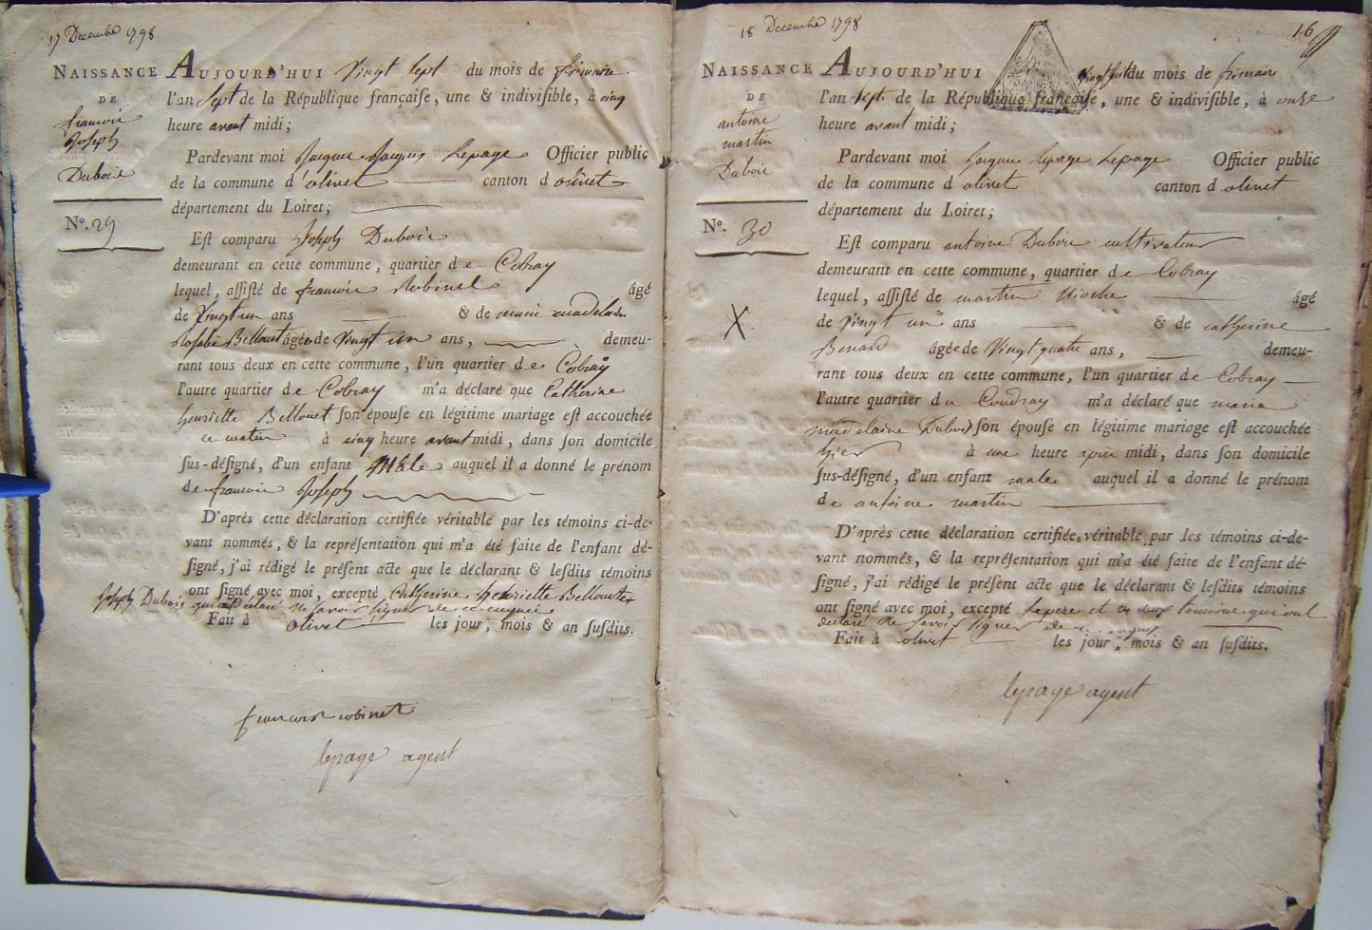 17 Decembre 1798
NAISSANCE
DE
françois
Joseph
Duboie
No. 29
AUJOURD'HUI Vingt Sept du mois de frimaire
l'an Sept de la République françaiſe, une & indiviſible, à cinq
heure avant midi;
Pardevant moi Jacques Lepage Officier public
de la commune d'olivet canton d olivet
département du Loiret;
Eſt comparu Joseph Duboie
demeurant en cette commune, quartier de Cobray
lequel, aſſiſté de francois Robinet âgé
de Vingt un ans & de marie madelaine
Rosalie Bellouet âgée de Vingt un ans, demeu-
rant tous deux en cette commune, l'un quartier de Cobray
l'autre quartier de Cobray m'a déclaré que Catherine
henriette Bellouet ſon épouſe en légitime mariage eſt accouchée
ce matin à cinq heure avant midi, dans ſon domicile
ſus-déſigné, d'un enfant Mâle auquel il a donné le prénom
de francois Joseph
D'après cette déclaration certifiée véritable par les témoins ci-de-
vant nommés, & la repréſentation qui m'a été faite de l'enfant dé-
ſigné, j'ai rédigé le préſent acte que le déclarant & leſdits témoins
ont ſigné avec moi, excepté Catherine henriette Bellouet
Joseph Duboie qui a Declaré ne savoir signer de ce enquie
Fait à olivet les jour, mois & an ſuſdits.
francois robinet
lepage agent
18 Decembre 1798
16
NAISSANCE
DE
antoine
martin
Duboie
No. 30
X
AUJOURD'HUI vingt huit du mois de frimaire
l'an Sept de la République françaiſe, une & indiviſible, à onze
heure avant midi;
Pardevant moi Jacques lepage Lepage Officier public
de la commune d olivet canton d olivet
département du Loiret;
Eſt comparu antoine Duboie cultivateur
demeurant en cette commune, quartier de Cobray
lequel, aſſiſté de martin âgé
de Vingt un ans & de catherine
Benard âgée de Vingt quatre ans, demeu-
rant tous deux en cette commune, l'un quartier de Cobray
l'autre quartier du Coudray m'a déclaré que marie
madelaine ſon épouſe en légitime mariage eſt accouchée
hier à une heure apres midi, dans ſon domicile
ſus-déſigné, d'un enfant male auquel il a donné le prénom
de antoine martin
D'après cette déclaration certifiée véritable par les témoins ci-de-
vant nommés, & la repréſentation qui m'a été faite de l'enfant dé-
ſigné, j'ai rédigé le préſent acte que le déclarant & leſdits témoins
ont ſigné avec moi, excepté le pere et les deux temoins qui ont
declaré ne savoir signer de ce
Fait à olivet les jour, mois & an ſuſdits.
lepage agent